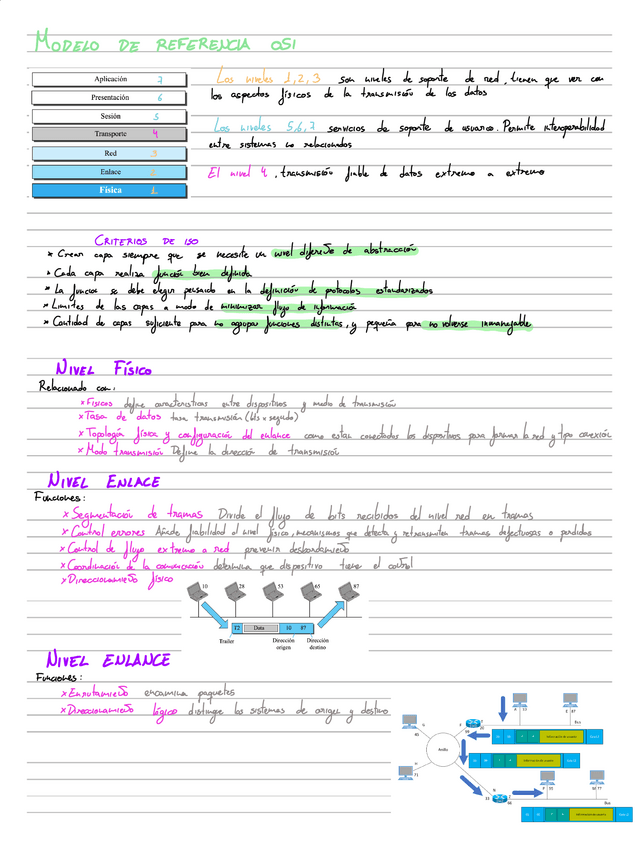 MODELO DE REFERENCIA OSI
Aplicación 7
Presentación 6
Sesión 5
Transporte 4
Red 3
Enlace 2
Física 1
Los niveles 1,2,3 son niveles de soporte de red, tienen que ver con
los aspectos físicos de la transmisión de los datos
Los niveles 5,6,7 servicios de soporte de usuario. Permite interoperabilidad
entre sistemas no relacionados
El nivel 4, transmisión fiable de datos extremo a extremo
CRITERIOS DE ISO
* Crear capa siempre que se necesite un nivel diferente de abstracción
* Cada capa realiza función bien definida
* La función se debe elegir pensando en la definición de protocolos estandarizados
* Limites de las capas a modo de minimizar flujo de información
* Cantidad de capas suficiente para no agrupar funciones distintas, y pequeña para no volverse inmanejable
NIVEL FÍSICO
Relacionado con:
* Físicos define características entre dispositivos y medio de transmisión
* Tasa de datos tasa transmisión (bits x segundo)
* Topología física y configuración del enlance como estan conectados los dispositivos para formar la red y tipo conexión
* Modo transmisión Define la dirección de transmisión
NIVEL ENLACE
Funciones:
* Segmentación de tramas Divide el flujo de bits recibidos del nivel red en tramas
* Control errores Añade fiabilidad al nivel físico, mecanismos que detecta y retransmiten tramas defectuosas o perdidas
* Control de flujo extremo a red prevenir desbordamiento
* Coordinación de la comunicación determina que dispositivo tiene el control
* Direccionamiento físico
10 28 53 65 87
T2 Data 10 87
Trailer Dirección origen Dirección destino
NIVEL ENLANCE
Funciones:
* Enrutamiento encamina paquetes
* Direccionamiento lógico distingue los sistemas de origen y destino
Anillo
Bus